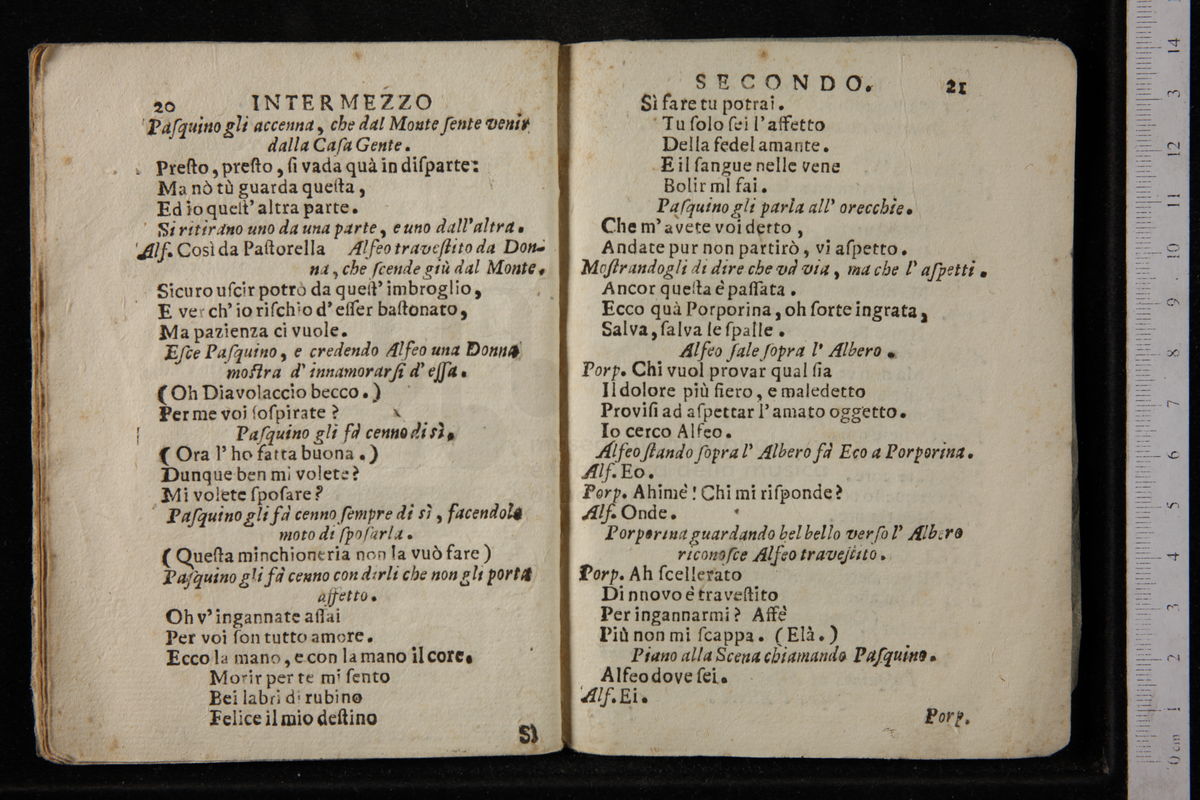 20 INTERMEZZO
Paſquino gli accenna, che dal Monte ſente venir
dalla Caſa Gente.
Preſto, preſto, ſi vada quà in diſparte:
Ma nò tù guarda queſta,
Ed io queſt' altra parte.
Si ritirano uno da una parte, e uno dall'altra.
Alf. Così da Paſtorella Alfeo traveſtito da Don-
na, che ſcende giù dal Monte.
Sicuro uſcir potrò da queſt' imbroglio,
E ver ch' io riſchio d' eſſer baſtonato,
Ma pazienza ci vuole.
Eſce Paſquino, e credendo Alfeo una Donna
moſtra d' innamorarſi d' eſſa.
(Oh Diavolaccio becco.)
Per me voi ſoſpirate?
Paſquino gli fà cenno di sì.
(Ora l' ho fatta buona.)
Dunque ben mi volete?
Mi volete ſpoſare?
Paſquino gli fà cenno ſempre di sì, facendole
moto di ſpoſarla.
(Queſta minchioneria non la vuò fare)
Paſquino gli fà cenno con dirli che non gli porta
affetto.
Oh v' ingannate aſſai
Per voi ſon tutto amore.
Ecco la mano, e con la mano il core.
Morir per te mi ſento
Bei labri di rubino
Felice il mio deſtino
Sì
SECONDO. 21
Sì fare tu potrai.
Tu ſolo ſei l'affetto
Della fedel amante.
E il ſangue nelle vene
Bolir mi fai.
Paſquino gli parla all' orecchie.
Che m' avete voi detto,
Andate pur non partirò, vi aſpetto.
Moſtrandogli di dire che và via, ma che l' aſpetti.
Ancor queſta è paſſata.
Ecco quà Porporina, oh ſorte ingrata,
Salva, ſalva le ſpalle.
Alfeo ſale ſopra l' Albero.
Porp. Chi vuol provar qual ſia
Il dolore più fiero, e maledetto
Proviſi ad aſpettar l'amato oggetto.
Io cerco Alfeo.
Alfeo ſtando ſopra l' Albero fà Eco a Porporina.
Alf. Eo.
Porp. Ahimè! Chi mi riſponde?
Alf. Onde.
Porporina guardando bel bello verſo l' Albero
riconoſce Alfeo traveſtito.
Porp. Ah ſcellerato
Di nnovo è traveſtito
Per ingannarmi? Affè
Più non mi ſcappa. (Elà.)
Piano alla Scena chiamando Paſquino.
Alfeo dove ſei.
Alf. Ei.
Porp.